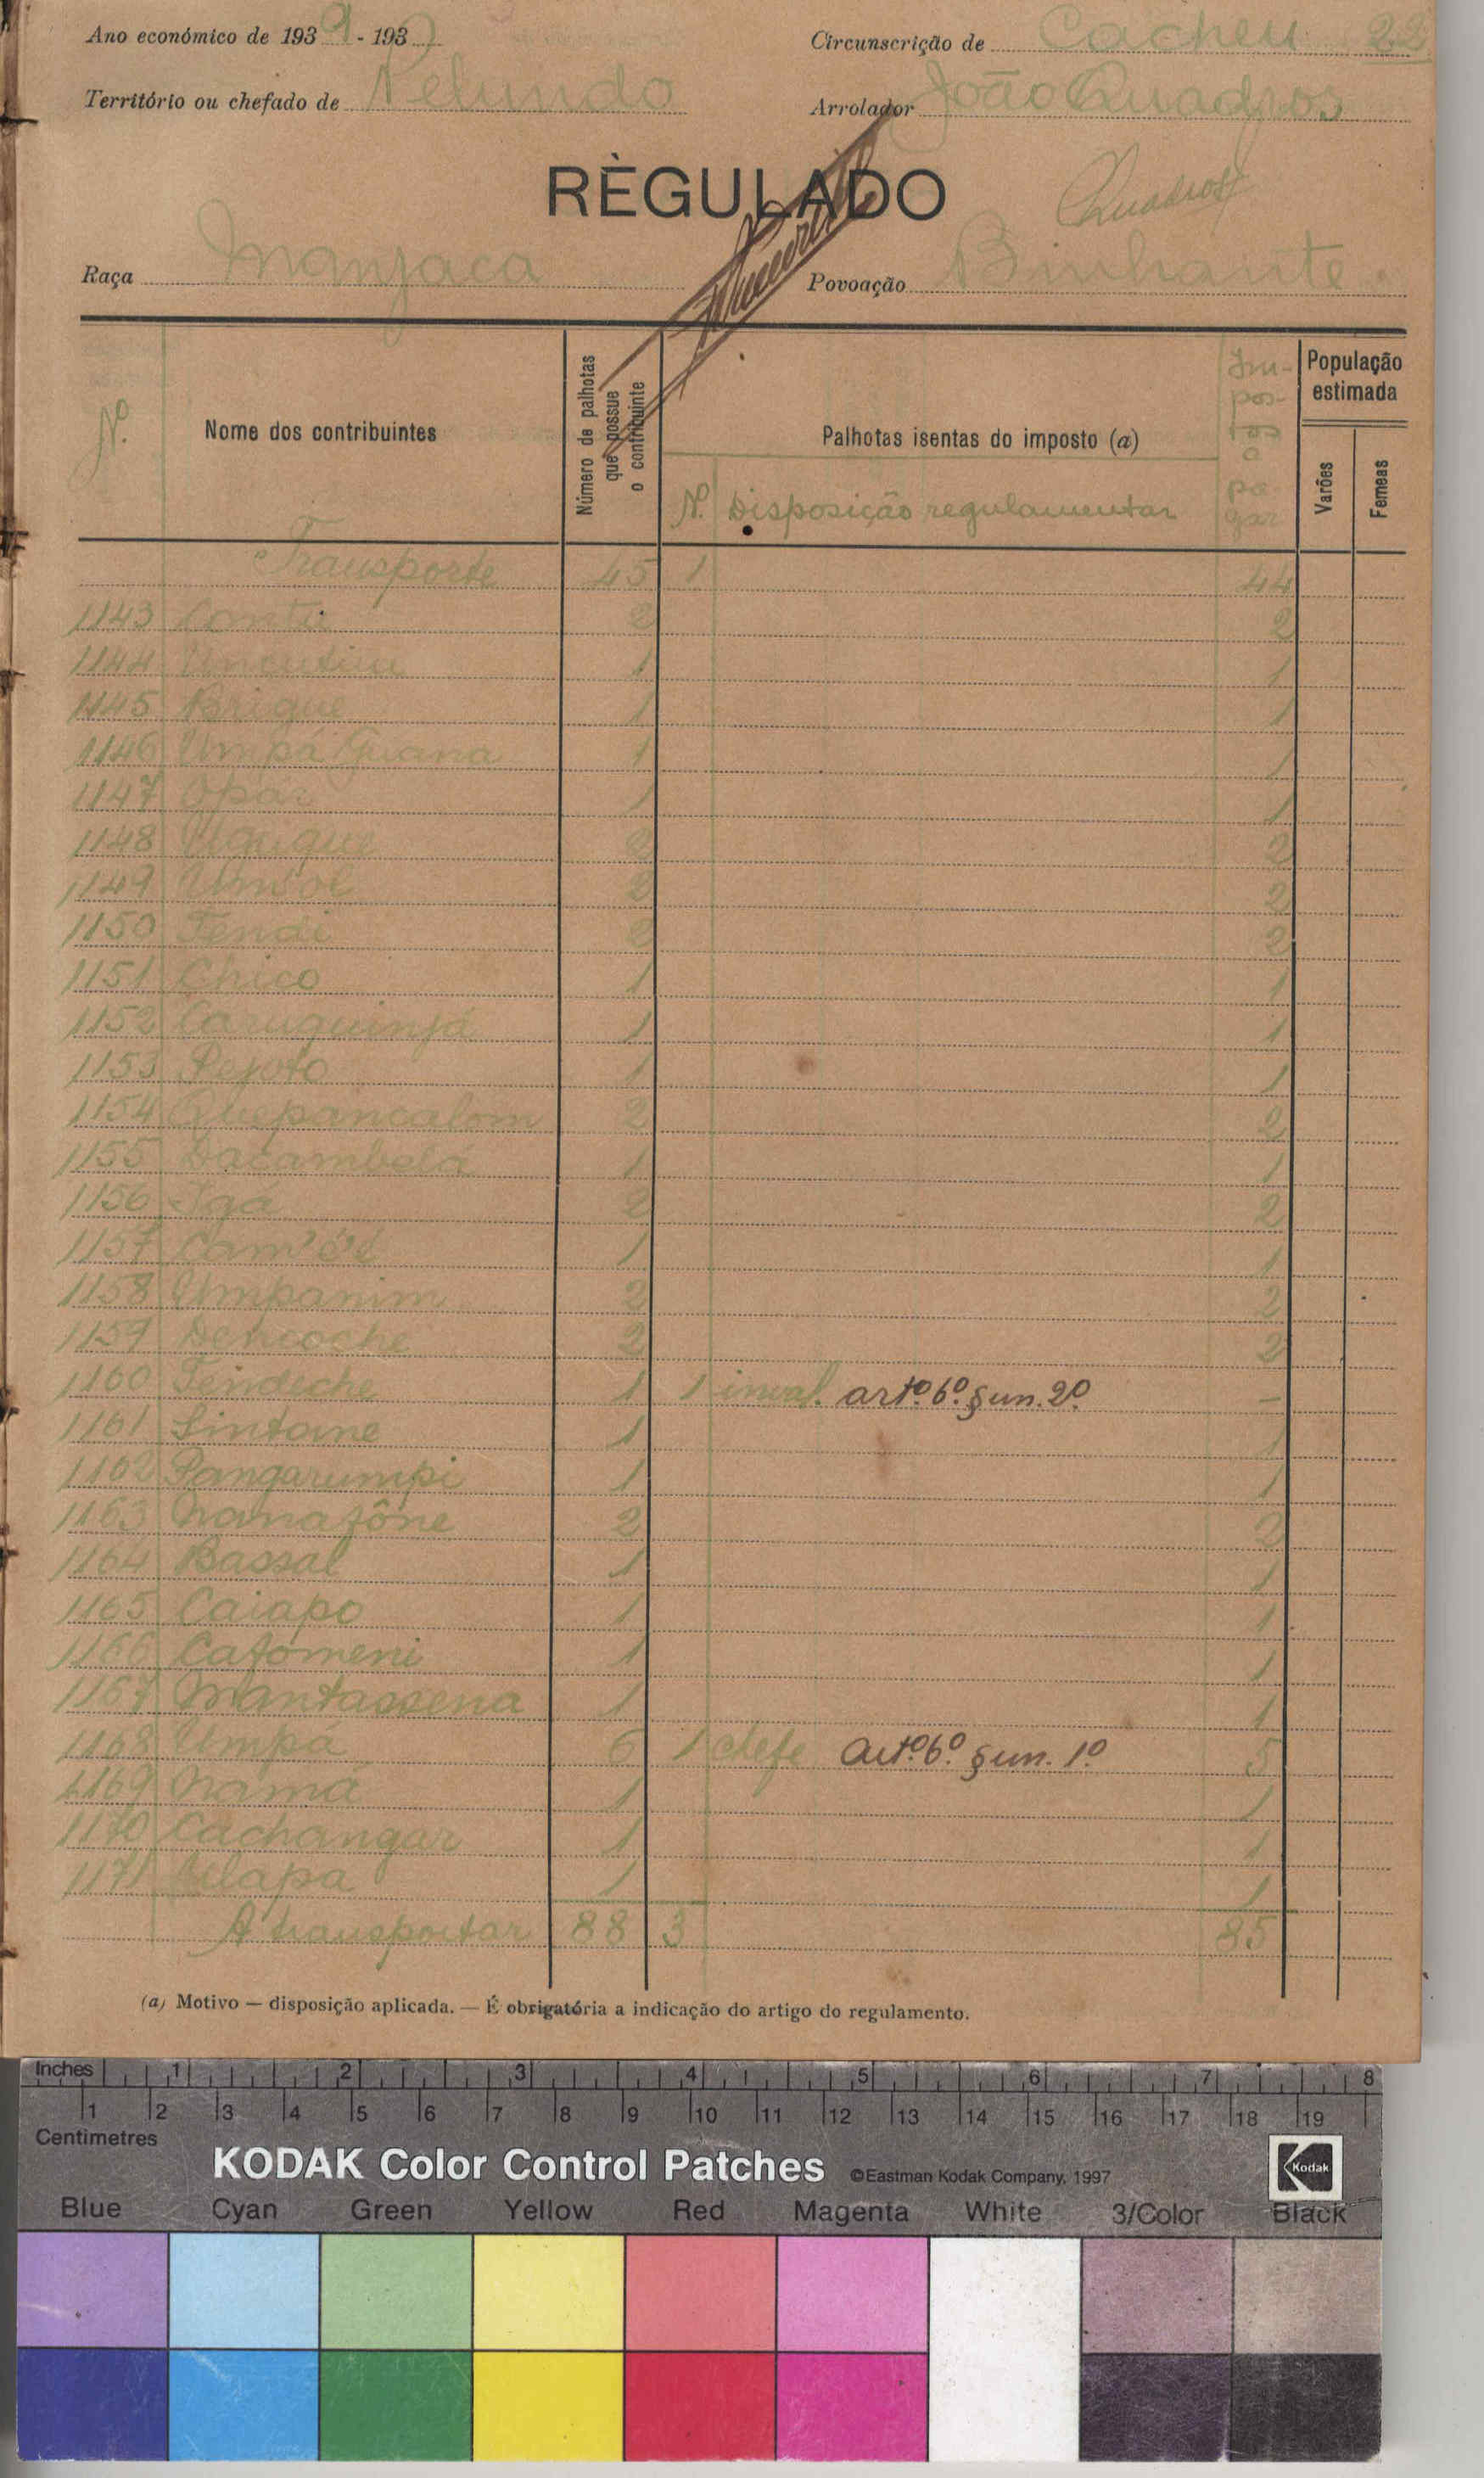 Ano económico de 1939 - 193
Circunscrição de Cacheu 22
Território ou chefado de Pelundo
Arrolador João Quadros
RÈGULADO
Quadros
Raça Manjaca
Povoação Binhante
Nº Nome dos contribuintes Número de palhotas que possue o contribuinte Palhotas isentas do imposto (a) Nº Disposição regulamentar Impostos a pagar População estimada Varões Femeas
Transporte 45 1 44
1143 2 2
1144 1 1
1145 Brique 1 1
1146 Umpá Guana 1 1
1147 Opar 1 1
1148 2 2
1149 2 2
1150 Tendi 2 2
1151 Chico 1 1
1152 Caruguinjá 1 1
1153 1 1
1154 Quepancalom 2 2
1155 Dacambelá 1 1
1156 2 2
1157 1 1
1158 Umpanim 2 2
1159 Dencoche 2 2
1160 Tendeche 1 1 inval. artº. 6º. § un. 2º. -
1161 Sintaine 1 1
1162 Pangarumpi 1 1
1163 Namafône 2 2
1164 Bassal 1 1
1165 Caiapo 1 1
1166 Cafomeni 1 1
1167 Mantassena 1 1
1168 Umpá 6 1 chefe Artº. 6º. § un. 1º 5
1169 Namá 1 1
1170 Cachangar 1 1
1171 1 1
A transportar 88 3 85
(a) Motivo — disposição aplicada. — É obrigatória a indicação do artigo do regulamento.
Inches 1 2 3 4 5 6 7 8
1 2 3 4 5 6 7 8 9 10 11 12 13 14 15 16 17 18 19
Centimetres
KODAK Color Control Patches ©Eastman Kodak Company, 1997 Kodak
Blue Cyan Green Yellow Red Magenta White 3/Color Black